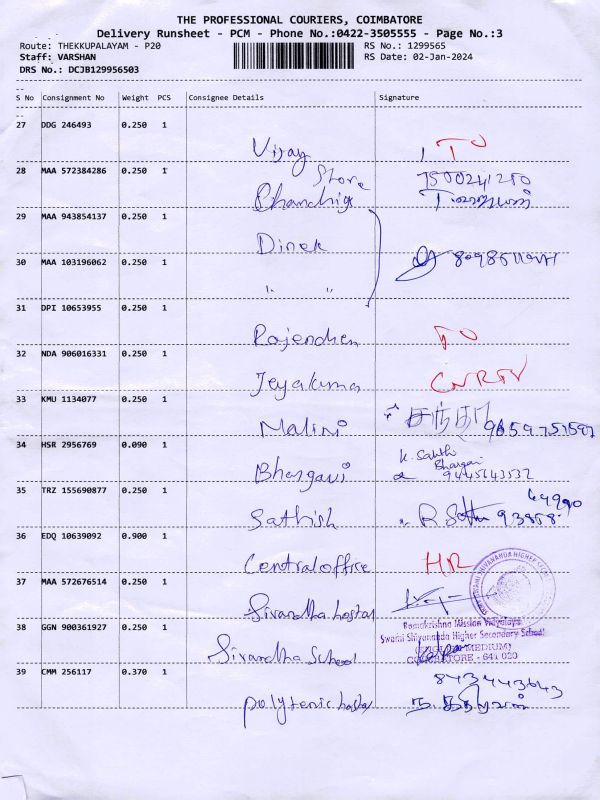 THE PROFESSIONAL COURIERS, COIMBATORE
Delivery Runsheet - PCM - Phone No.:0422-3505555 - Page No.:3
Route: THEKKUPALAYAM - P20 RS No.: 1299565
Staff: VARSHAN RS Date: 02-Jan-2024
DRS No.: DCJB129956503
S No Consignment No Weight PCS Consignee Details Signature
27 DDG 246493 0.250 1
Vijay TO
28 MAA 572384286 0.250 1
Store
Chandriga
29 MAA 943854137 0.250 1
Dinek
30 MAA 103196062 0.250 1
" "
31 DPI 10653955 0.250 1
Rajendhen TO
32 NDA 906016331 0.250 1
Jeyakuma
33 KMU 1134077 0.250 1
Malini
34 HSR 2956769 0.090 1
K. Sakth
Bhargavi
Bhargavi 9445643532
35 TRZ 155690877 0.250 1
Sathish
36 EDQ 10639092 0.900 1
Central office HR
37 MAA 572676514 0.250 1
Sivandha hostal
Ramakrishna Mission Vidyalaya
38 GGN 900361927 0.250 1
Swami Shivananda Higher Secondary School
Sivandha School
COIMBATORE - 641 020
39 CMM 256117 0.370 1
8434443643
polytenic hostal